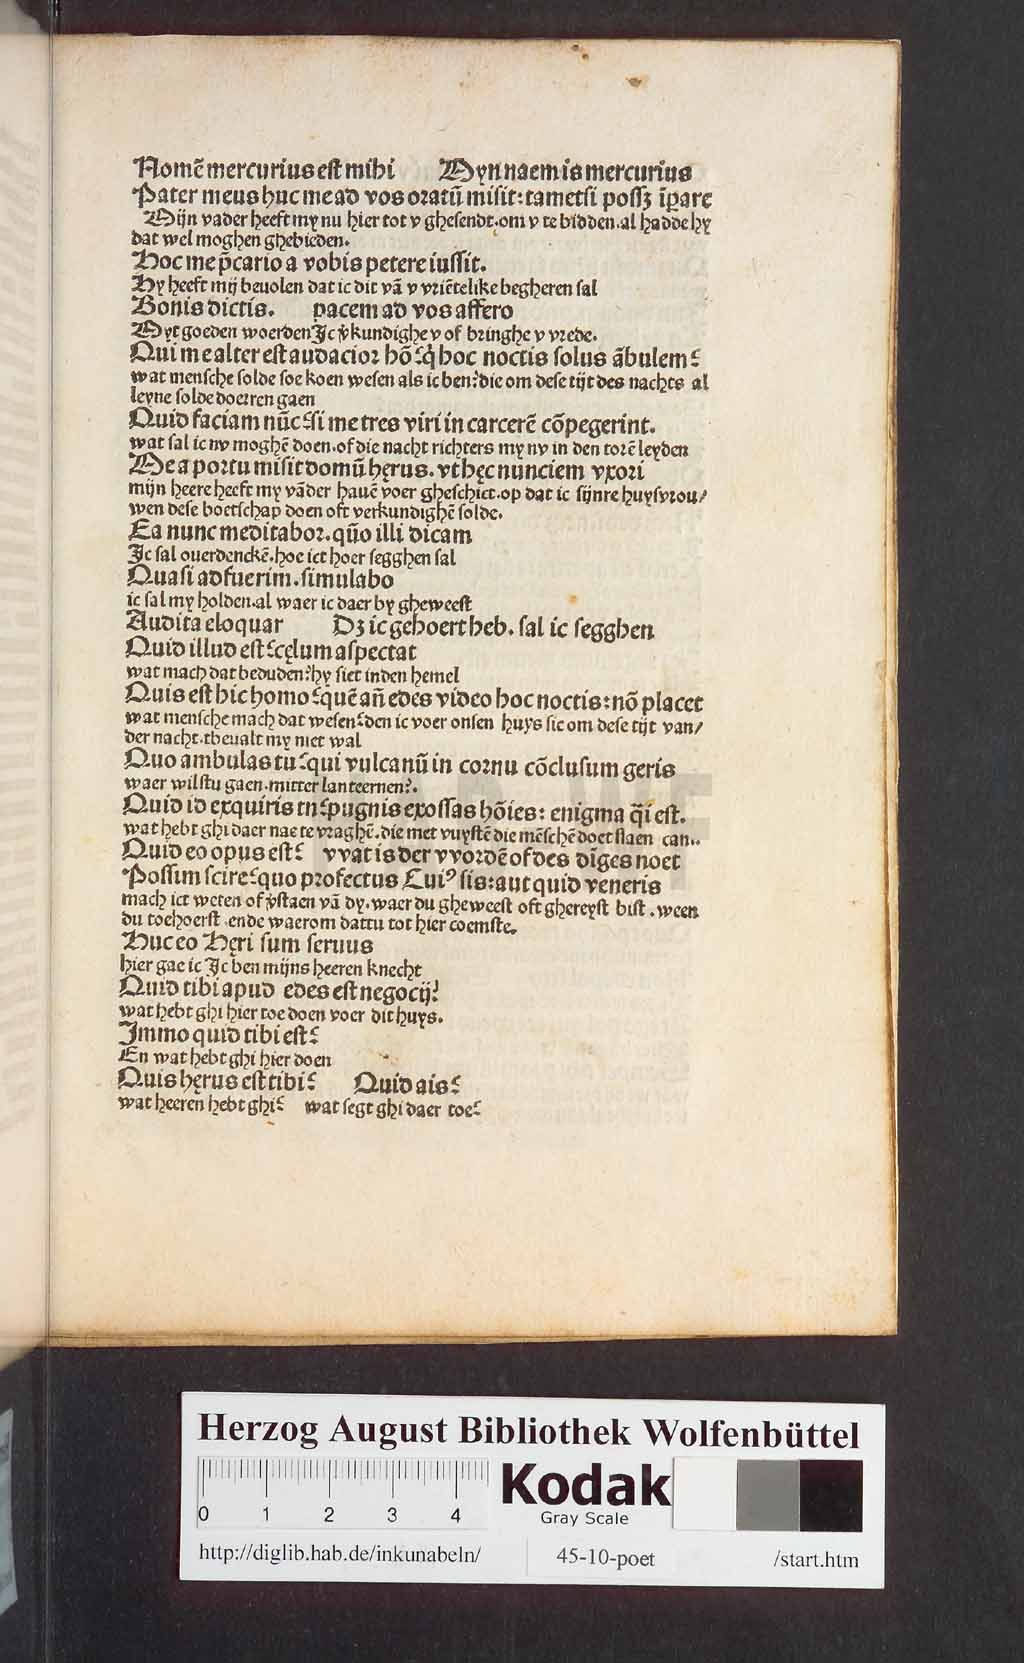 Nomē mercurius est mihi Myn naem is mercurius
Pater meus huc me ad vos oratū misit: tametsi possꝫ īpare
Mijn vader heeft my nu hier tot v ghesendt. om v te bidden. al hadde hy
dat wel moghen ghebieden.
Hoc me p̄cario a vobis petere iussit.
Hy heeft mij beuolen dat ic dit vā v vriētelike begheren sal
Bonis dictis. pacem ad vos affero
Myt goeden woerden Jc v̄kundighe v of bringhe v vrede.
Qui me alter est audacior hō? q̇ hoc noctis solus ābulem?
wat mensche solde soe koen wesen als ic ben? die om dese tijt des nachts al
leyne solde doerren gaen
Quid faciam nūc? si me tres viri in carcerē cōpegerint.
wat sal ic nv moghē doen. of die nacht richters my nv in den torē leyden
Me a portu misit domū hęrus. vt hęc nunciem vxori
mijn heere heeft my vāder hauē voer gheschict. op dat ic sijnre huysvrou/
wen dese boetschap doen oft verkundighē solde.
Ea nunc meditabor. qūo illi dicam
Jc sal ouerdenckē. hoe ict hoer segghen sal
Quasi adfuerim. simulabo
ic sal my holden. al waer ic daer by gheweest
Audita eloquar Dꝫ ic gehoert heb. sal ic segghen
Quid illud est? cęlum aspectat
wat mach dat beduden? hy siet inden hemel
Quis est hic homo? quē an̄ edes video hoc noctis: nō placet
wat mensche mach dat wesen? den ic voer onsen huys sie om dese tijt van/
der nacht. tbeualt my niet wal
Quo ambulas tu? qui vulcanū in cornu cōclusum geris
waer wilstu gaen. mitter lanteernen?.
Quid id exquiris tn? pugnis exossas hōies: enigma q̄i est.
wat hebt ghi daer nae te vraghē. die met vuystē die mēschē doet slaen can..
Quid eo opus est? vvat is der vvordē of des dīges noet
Possim scire? quo profectus Cuiꝰ sis: aut quid veneris
mach ict weten of v̄staen vā dy. waer du gheweest oft ghereyst bist. ween
du toehoerst. ende waerom dattu tot hier coemste.
Huc eo Hęri sum seruus
hier gae ic Jc ben mijns heeren knecht
Quid tibi apud edes est negocij?
wat hebt ghi hier toe doen voer dit huys.
Jmmo quid tibi est?
En wat hebt ghi hier doen
Quis hęrus est tibi? Quid ais?
wat heeren hebt ghi? wat segt ghi daer toe?
Herzog August Bibliothek Wolfenbüttel
0 1 2 3 4
Kodak
Gray Scale
http://diglib.hab.de/inkunabeln/ 45-10-poet /start.htm